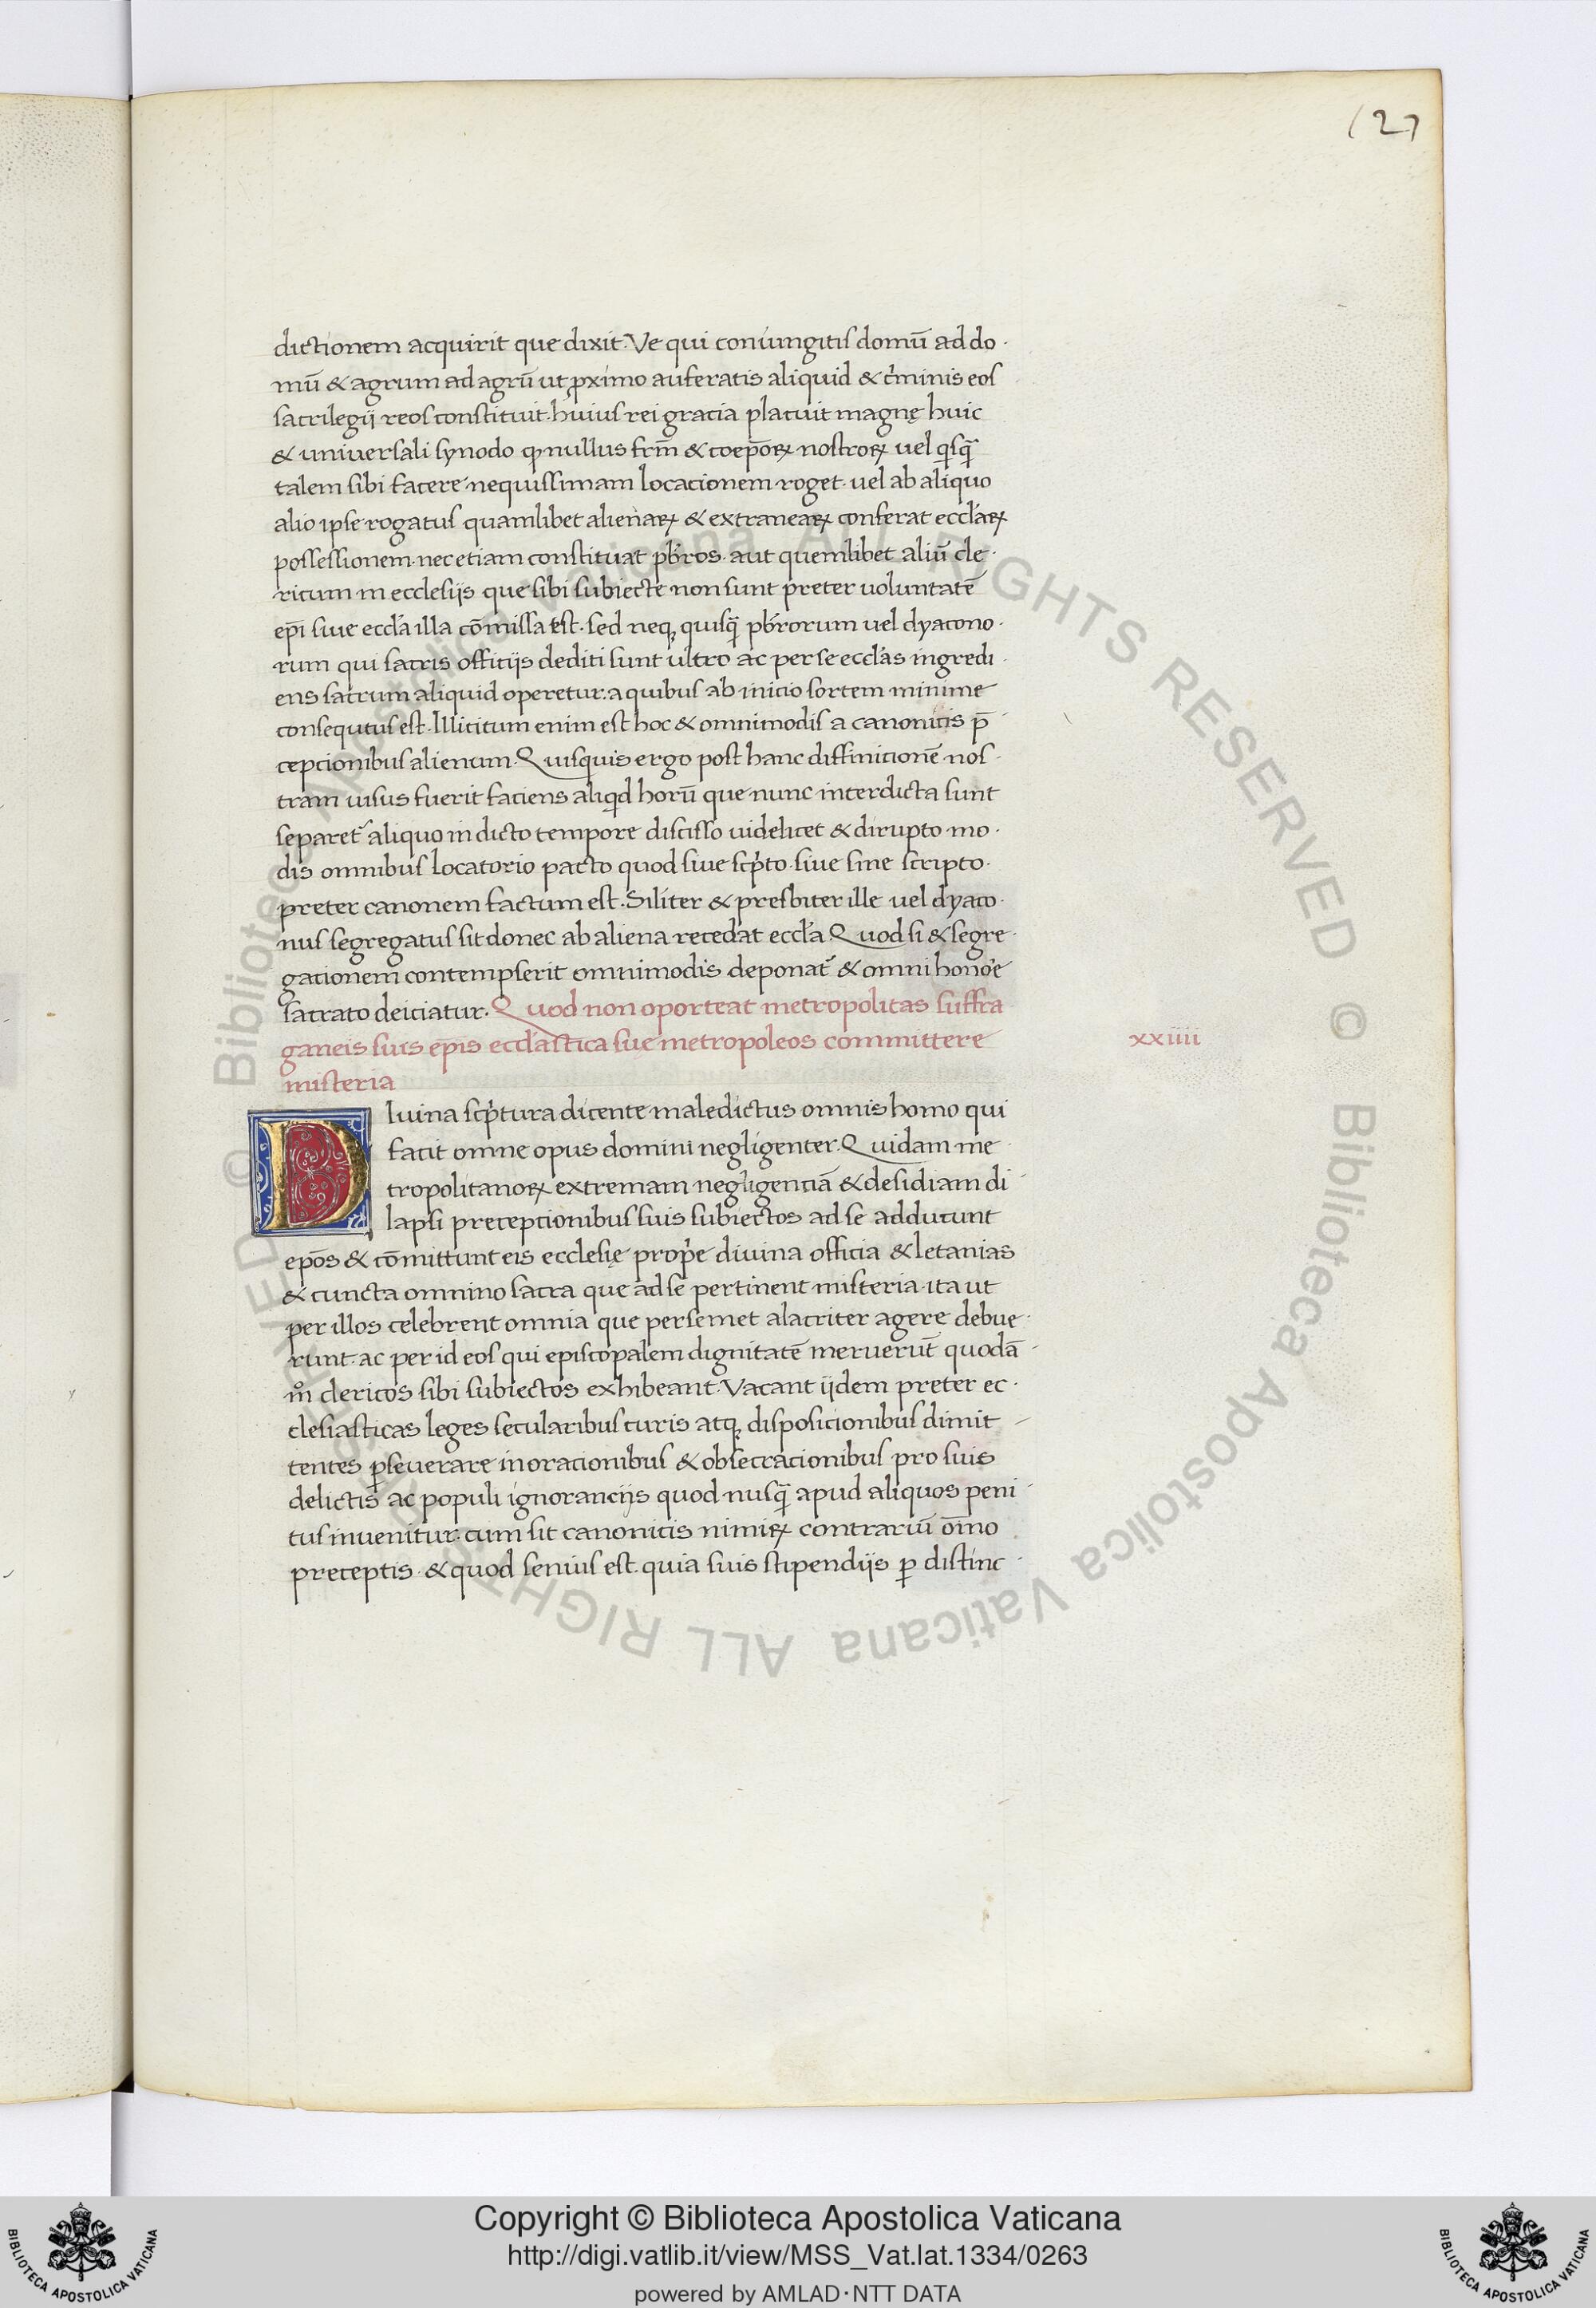 127
dictionem acquirit que dixit. Ve qui coniungitis domū ad do
mū & agrum ad agrū ut ꝓximo auferatis aliquid & cͥminis eos
sacrilegij reos constituit. huius rei gracia placuit magnę huic
& universali synodo ꝙ nullus frm̄ & coep̄oꝝ nostroꝝ vel qͥsqͣ̄
talem sibi facere nequissimam locacionem roget. vel ab aliquo
alio ipse rogatus quamlibet alienaꝝ & extraneaꝝ conferat eccl'aꝝ
possessionem. nec etiam constituat pb'ros. aut quemlibet aliū cle
ricum in ecclesijs que sibi subiecte non sunt preter voluntatē
ep̄i sive eccl'a illa cōmissa est. sed neqꝫ quisqͣ̄ pb'rorum vel dyacono
rum qui sacris officijs dediti sunt ultro ac per se eccl'as ingredi
ens sacrum aliquid operetur: a quibus ab inicio sortem minime
consequtus est. Illicitum enim est hoc & omnimodis a canonicis p̄
cepcionibus alienum. Quisquis ergo post hanc diffinicionē nos
tram visus fuerit faciens aliqͥd horū que nunc interdicta sunt
separet' aliquo in dicto tempore discisso videlicet & dirupto mo
dis omnibus locatorio pacto quod sive scͥpto. sive sine scripto.
preter canonem factum est. Siliter & presbiter ille vel dyaco
nus segregatus sit donec ab aliena recedat eccl'a. Quod si & segre
gationem contempserit omnimodis deponat' & omni honore
sacrato deiciatur. Quod non oporteat metropolitas suffra
ganeis suis ep̄is eccl'astica sue metropoleos committere
xxiiii
misteria
Divina scͥptura dicente maledictus omnis homo qui
facit omne opus domini negligenter. Quidam me
tropolitanoꝝ extremam negligenciā & desidiam di
lapsi precepcionibus suis subiectos ad se adducunt
ep̄os & cōmittunt eis ecclesię propͥe divina officia & letanias
& cuncta omnino sacra que ad se pertinent misteria. ita ut
per illos celebrent omnia que per semet alacriter agere debue
runt. ac per id eos qui episcopalem dignitatē meruerūt quodā
mͦ clericos sibi subiectos exhibeant. Vacant ijdem preter ec
clesiasticas leges secularibus curis atqꝫ disposicionibus dimit
tentes ꝑseverare in oracionibus & obsecracionibus pro suis
delictis ac populi ignorancijs quod nusqͣ̄ apud aliquos peni
tus invenitur. cum sit canonicis nimiꝝ contrariū om̄o
preceptis. & quod sevius est. quia suis stipendijs ꝑ distinc
© Biblioteca Apostolica Vaticana ALL RIGHTS RESERVED © Biblioteca Apostolica Vaticana ALL RIGHTS RESERVED
Copyright © Biblioteca Apostolica Vaticana
http://digi.vatlib.it/view/MSS_Vat.lat.1334/0263
powered by AMLAD·NTT DATA
BIBLIOTECA APOSTOLICA VATICANA
BIBLIOTECA APOSTOLICA VATICANA